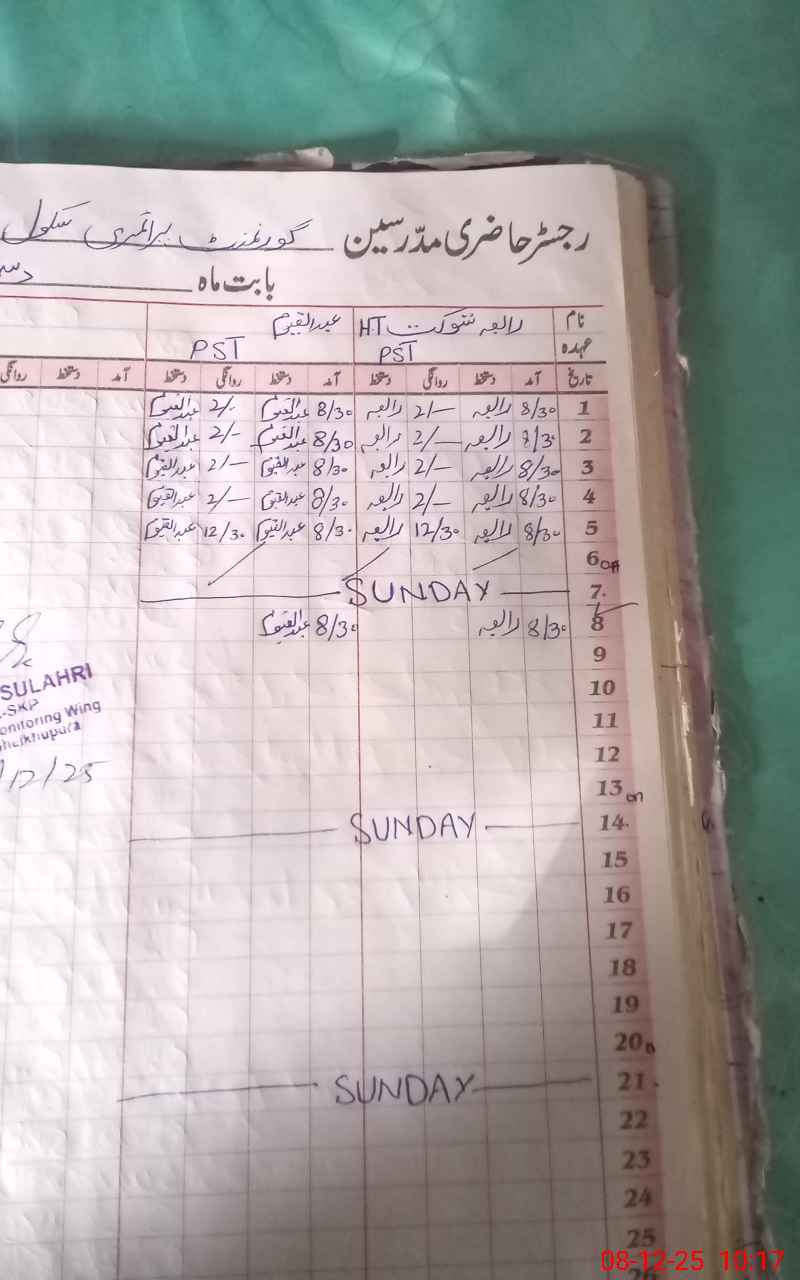 رجسٹر حاضری مدّرسین گورنمنٹ پرائمری سکول
بابت ماہ دسـ
نام رابعہ شوکت HT عبدالقیوم
عہدہ PST PST
تاریخ آمد دستخط روانگی دستخط آمد دستخط روانگی دستخط آمد دستخط روانگی
1 8/30 رابعہ 2/- رابعہ 8/30 عبدالقیوم 2/- عبدالقیوم
2 8/30 رابعہ 2/- رابعہ 8/30 عبدالقیوم 2/- عبدالقیوم
3 8/30 رابعہ 2/- رابعہ 8/30 عبدالقیوم 2/- عبدالقیوم
4 8/30 رابعہ 2/- رابعہ 8/30 عبدالقیوم 2/- عبدالقیوم
5 8/30 رابعہ 12/30 رابعہ 8/30 عبدالقیوم 12/30 عبدالقیوم
6 off
7 SUNDAY
8 8/30 رابعہ 8/30 عبدالقیوم
9
SULAHRI
10
-SKP
onitoring Wing
11
heikhupura
12
/12/25
13
14 SUNDAY
15
16
17
18
19
20
21 SUNDAY
22
23
24
25
26
08-12-25 10:17